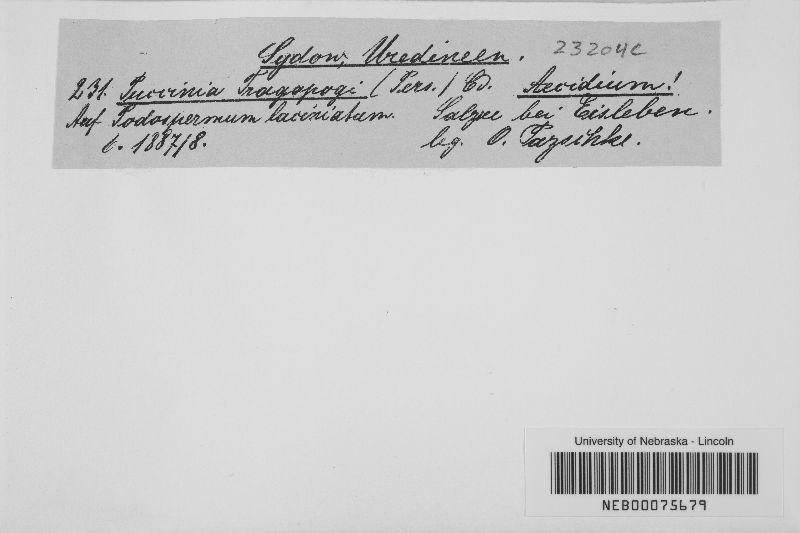 Sydow, Uredineen. 23204c
231. Puccinia Tragopogi (Pers.) Cd. Aecidium!
Auf Podospermum laciniatum. Salzee bei Eisleben.
6. 1887/8. leg. O. Pazschke.
University of Nebraska - Lincoln
NEB00075679